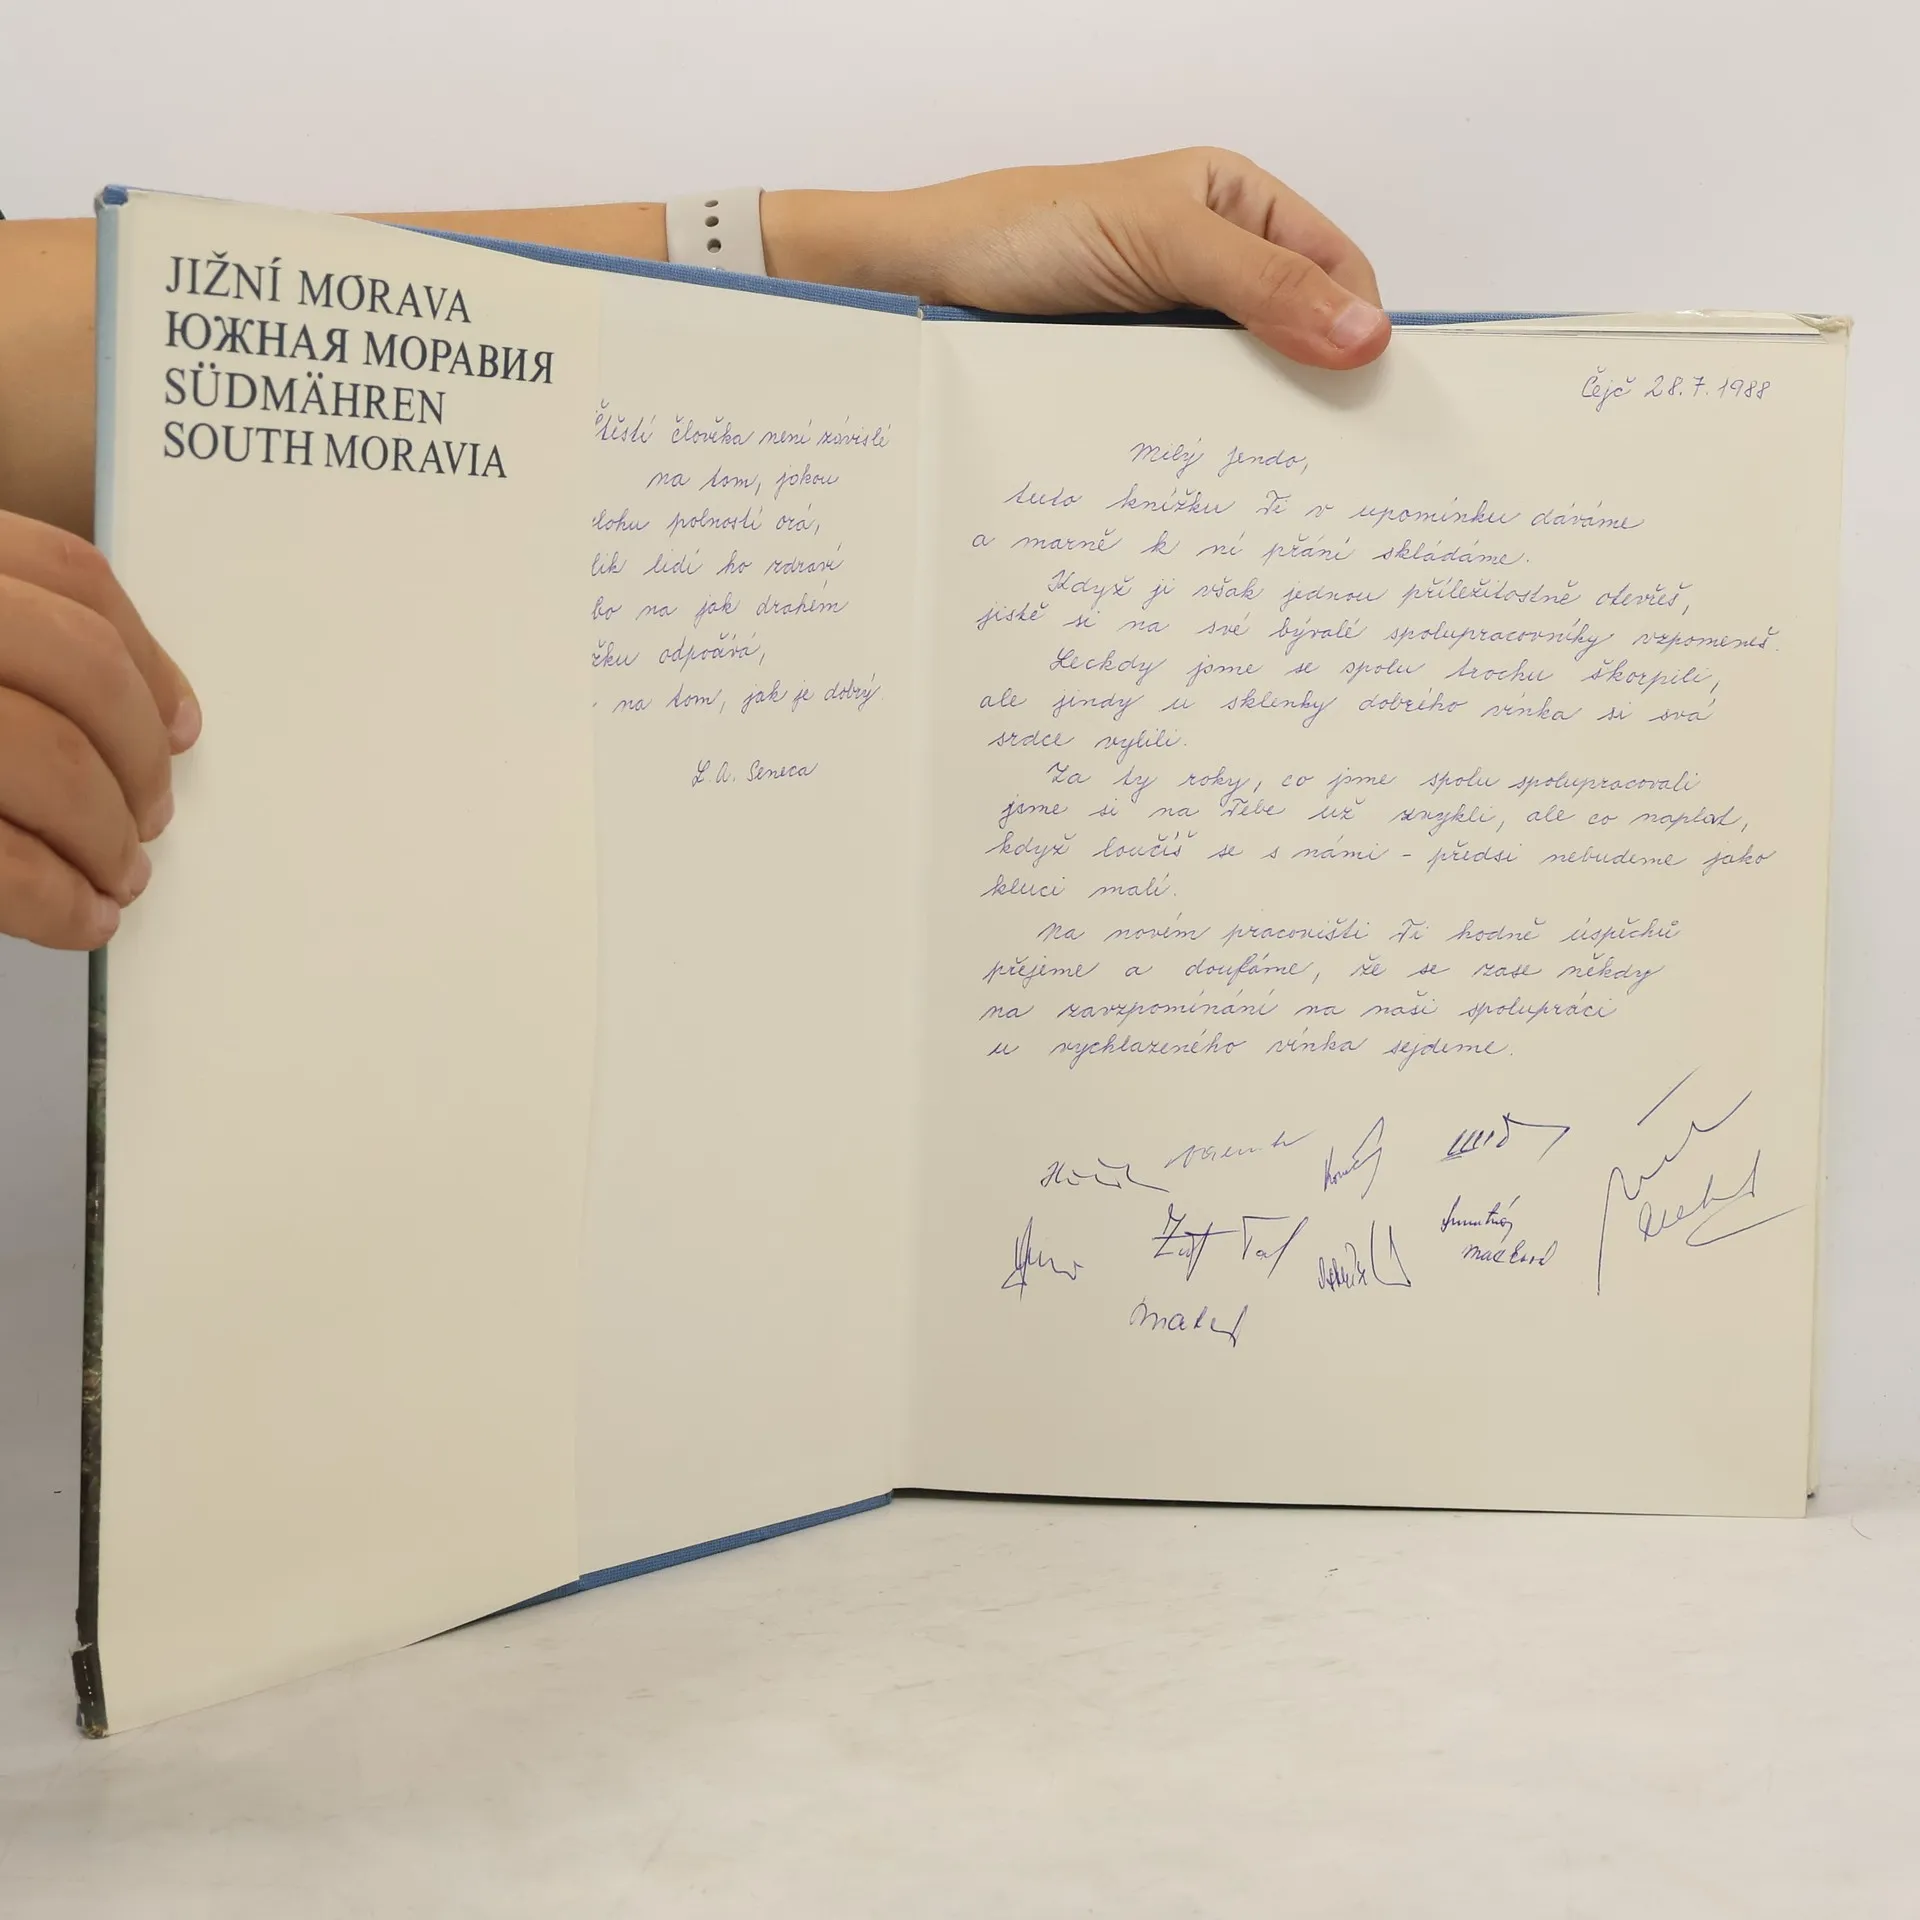 JIŽNÍ MORAVA
ЮЖНАЯ МОРАВИЯ
SÜDMÄHREN
SOUTH MORAVIA
Štěstí člověka není závislé
na tom, jakou
lohu polností orá,
lik lidí ho zdraví
bo na jak drahém
žku odpočívá,
na tom, jak je dobrý.
L. A. Seneca
Čejč 28.7.1988
Milý Jendo,
tuto knížku Ti v upomínku dáváme
a marně k ní přání skládáme.
Když ji však jednou příležitostně otevřeš,
jistě si na své bývalé spolupracovníky vzpomeneš.
Leckdy jsme se spolu trochu škorpili,
ale jindy u sklenky dobrého vínka si svá
srdce vylili.
Za ty roky, co jsme spolu spolupracovali
jsme si na Tebe už zvykli, ale co naplat,
když loučíš se s námi - předsi nebudeme jako
kluci malí.
Na novém pracovišti Ti hodně úspěchů
přejeme a doufáme, že se zase někdy
na zavzpomínání na naši spolupráci
u vychlazeného vínka sejdeme.